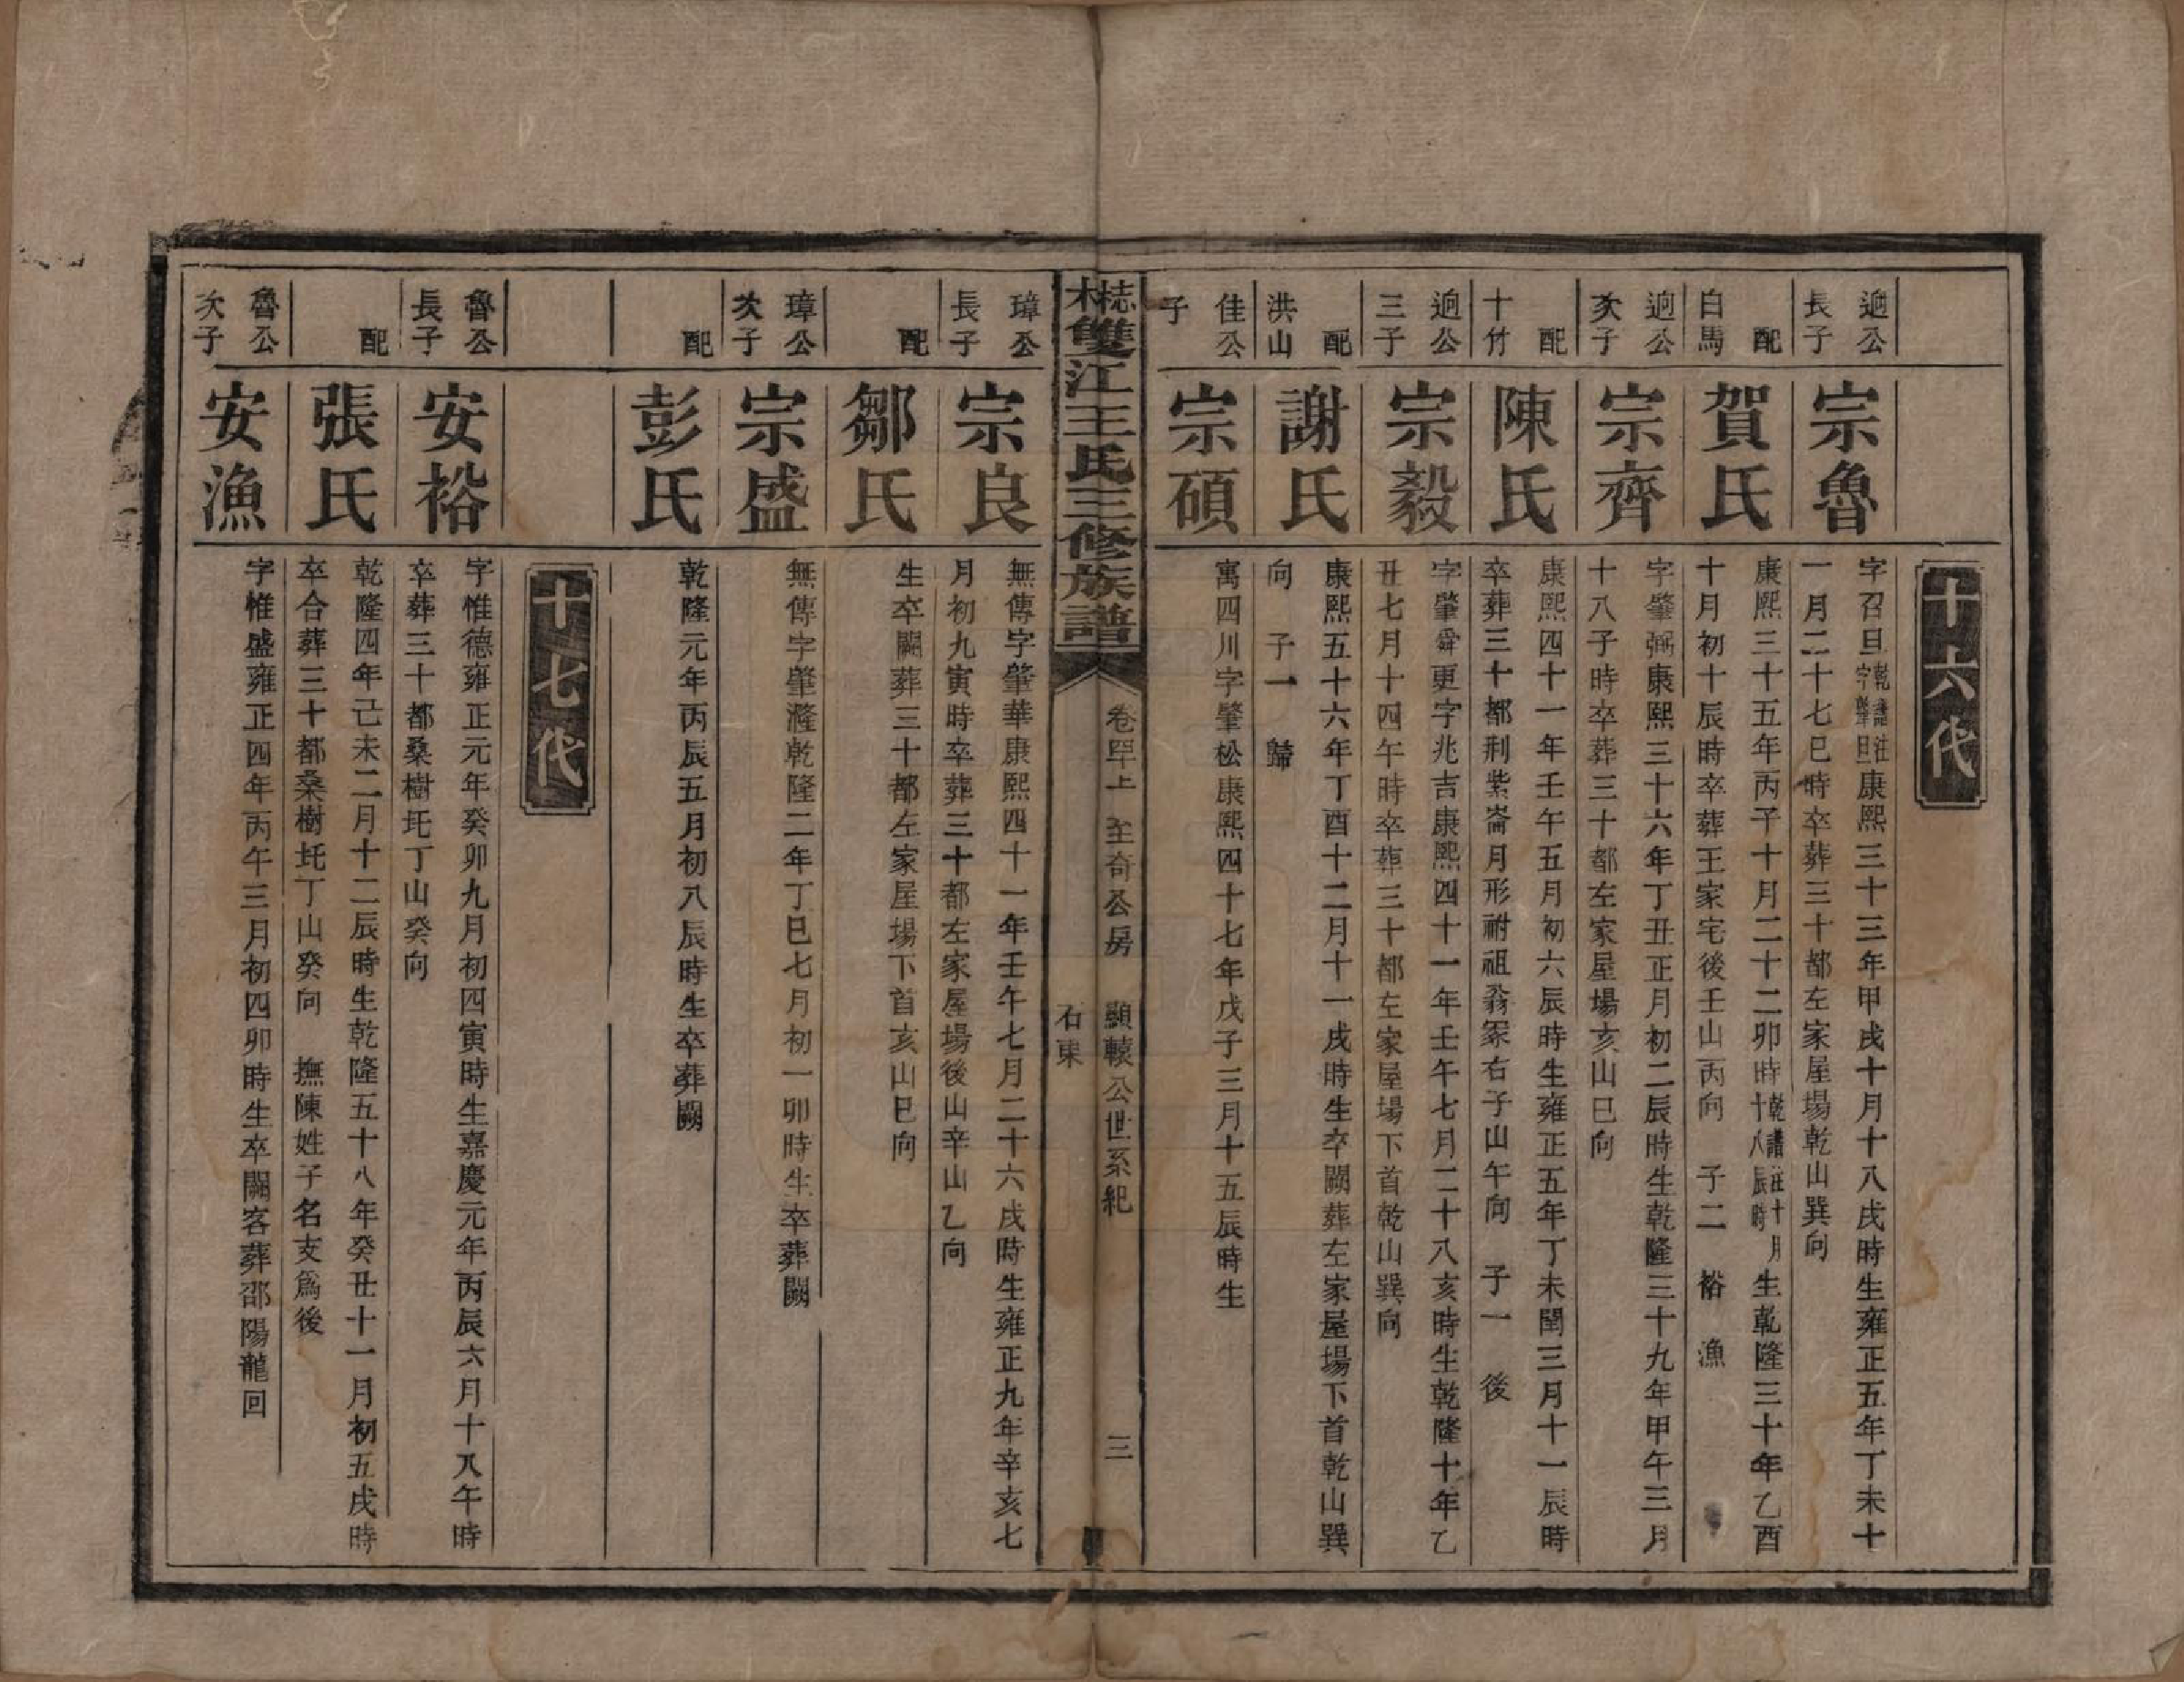 十六代
逈公長子
宗魯
字召旦乾譜注字肇旦康熙三十三年甲戌十月十八戌時生雍正五年丁未十
一月二十七巳時卒葬三十都左家屋場乾山巽向
白馬配
賀氏
康熙三十五年丙子十月二十二卯時乾譜註十月十八辰時生乾隆三十年乙酉
十月初十辰時卒葬王家宅後壬山丙向 子二 裕 漁
逈公次子
宗齊
字肇弼康熙三十六年丁丑正月初二辰時生乾隆三十九年甲午三月
十八子時卒葬三十都左家屋場亥山巳向
十竹配
陳氏
康熙四十一年壬午五月初六辰時生雍正五年丁未閏三月十一辰時
卒葬三十都荆紫崙月形祔祖翁冢右子山午向 子一 後
逈公三子
宗毅
字肇舜更字兆吉康熙四十一年壬午七月二十八亥時生乾隆十年乙
丑七月十四午時卒葬三十都左家屋場下首乾山巽向
洪山配
謝氏
康熙五十六年丁酉十二月十一戌時生卒闕葬左家屋場下首乾山巽
向 子一 歸
佳公子
宗碩
寓四川字肇松康熙四十七年戊子三月十五辰時生
雙江王氏三修族譜
卷四上 至奇公房 顯轅公世系紀 三
石東
璋公長子
宗良
無傳字肇華康熙四十一年壬午七月二十六戌時生雍正九年辛亥七
月初九寅時卒葬三十都左家屋場後山辛山乙向
配
鄒氏
生卒闕葬三十都左家屋場下首亥山巳向
璋公次子
宗盛
無傳字肇漋乾隆二年丁巳七月初一卯時生卒葬闕
配
彭氏
乾隆元年丙辰五月初八辰時生卒葬闕
十七代
魯公長子
安裕
字惟德雍正元年癸卯九月初四寅時生嘉慶元年丙辰六月十八午時
卒葬三十都桑樹圫丁山癸向
配
張氏
乾隆四年己未二月十二辰時生乾隆五十八年癸丑十一月初五戌時
卒合葬三十都桑樹圫丁山癸向 撫陳姓子名支爲後
魯公次子
安漁
字惟盛雍正四年丙午三月初四卯時生卒闕客葬邵陽龍回